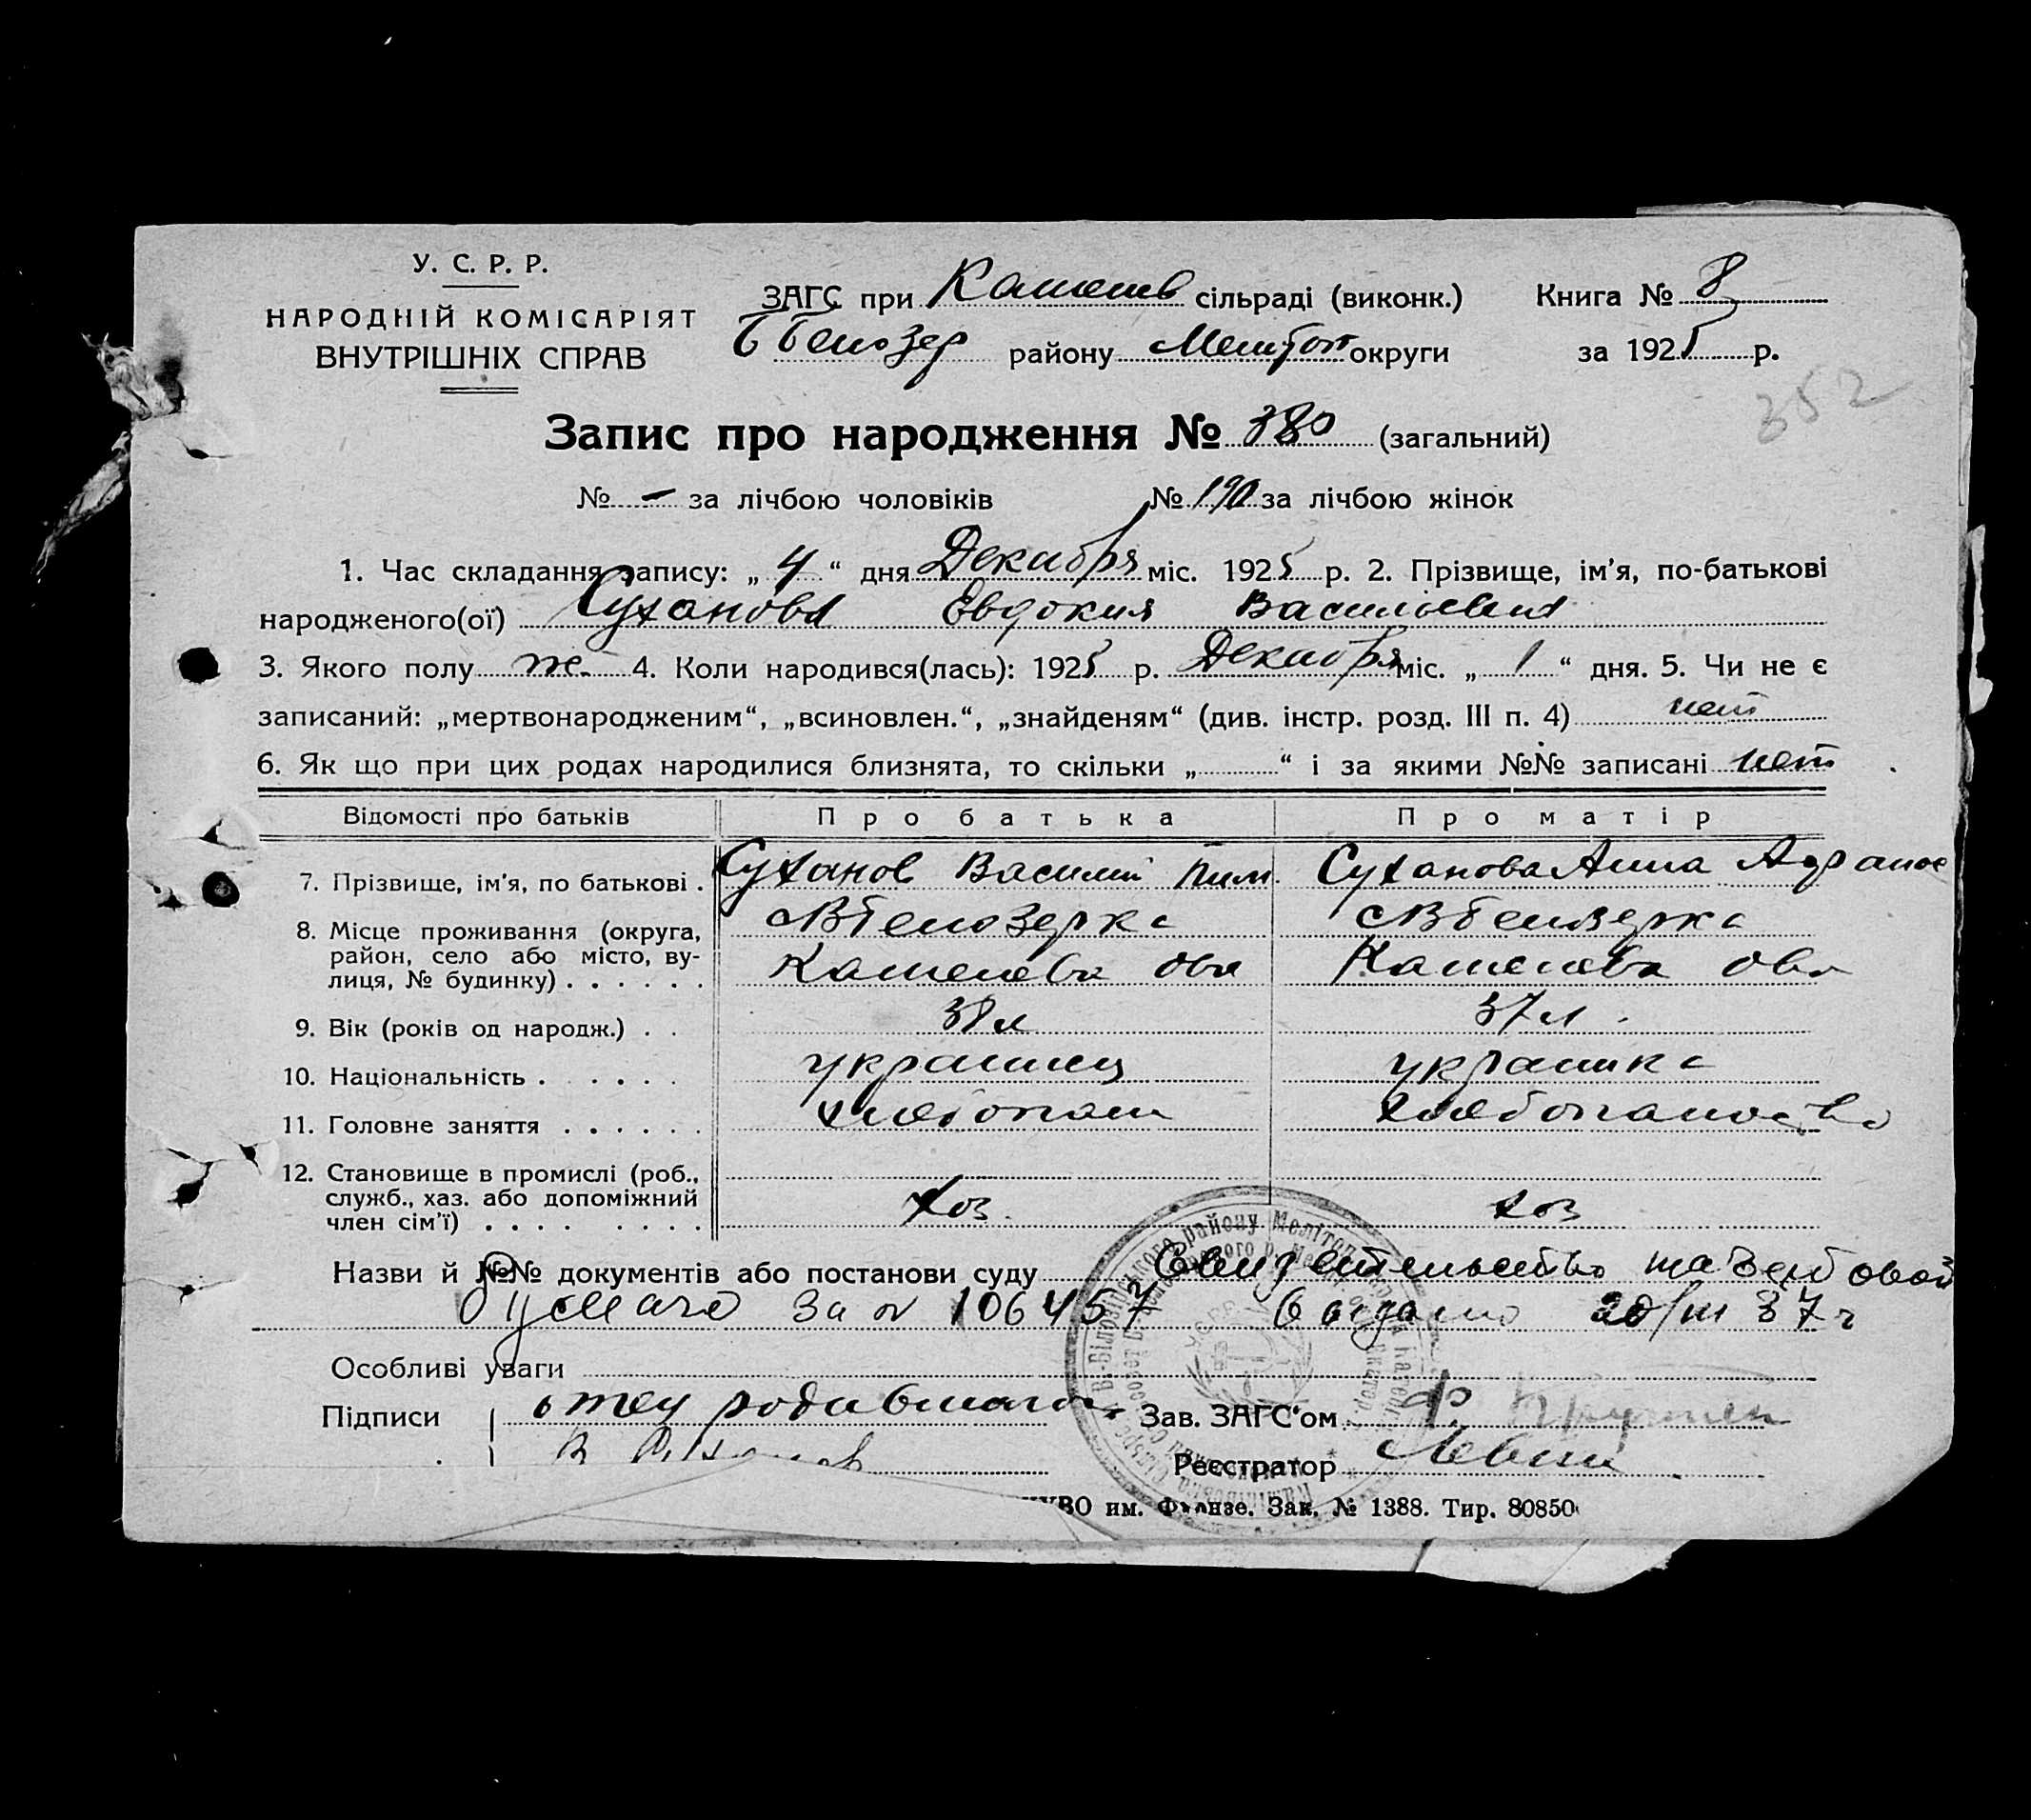 У. С. Р. Р.
НАРОДНІЙ КОМІСАРІЯТ
ВНУТРІШНІХ СПРАВ
ЗАГС при сільраді (виконк.)
Ббелозер району Мелитоп округи
Книга № 8
за 1925 р.
352
Запис про народження № 380 (загальний)
№ - за лічбою чоловіків № 190 за лічбою жінок
1. Час складання запису: „ 4 “ дня Декабря міс. 1925 р. 2. Прізвище, ім'я, по-батькові
народженого(ої) Суханова Евдокия Васильевна
3. Якого полу ж. 4. Коли народився(лась): 1925 р. Декабря міс. „ 1 “ дня. 5. Чи не є
записаний: „мертвонародженим“, „всиновлен.“, „знайденям“ (див. інстр. розд. III п. 4) нет
6. Як що при цих родах народилися близнята, то скільки „ “ і за якими №№ записані нет
Відомості про батьків Про батька Про матір
7. Прізвище, ім'я, по батькові . Суханов Василий Пим. Суханова Анна
8. Місце проживання (округа,
район, село або місто, ву-
лиця, № будинку) . . . . . .
9. Вік (років од народж.) . . 38 л 37 л.
10. Національність . . . . . . украинец украинка
11. Головне заняття . . . . . . хлебопаш хлебопашество
12. Становище в промислі (роб.,
служб., хаз. або допоміжний
член сім'ї) . . . . . . . . хоз. хоз
Назви й №№ документів або постанови суду Свидетельство
за № 106457 выдано 20/III 37 г
Особливі уваги
Підписи отец родившагося Зав. ЗАГС'ом Ф.
В Суханов Реєстратор
им. Фрунзе. Зак. № 1388. Тир. 80850